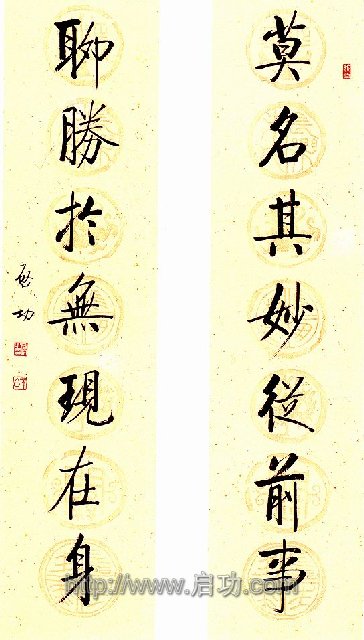 莫名其妙從前事
聊勝於無現在身
启功
http://www.启功.com